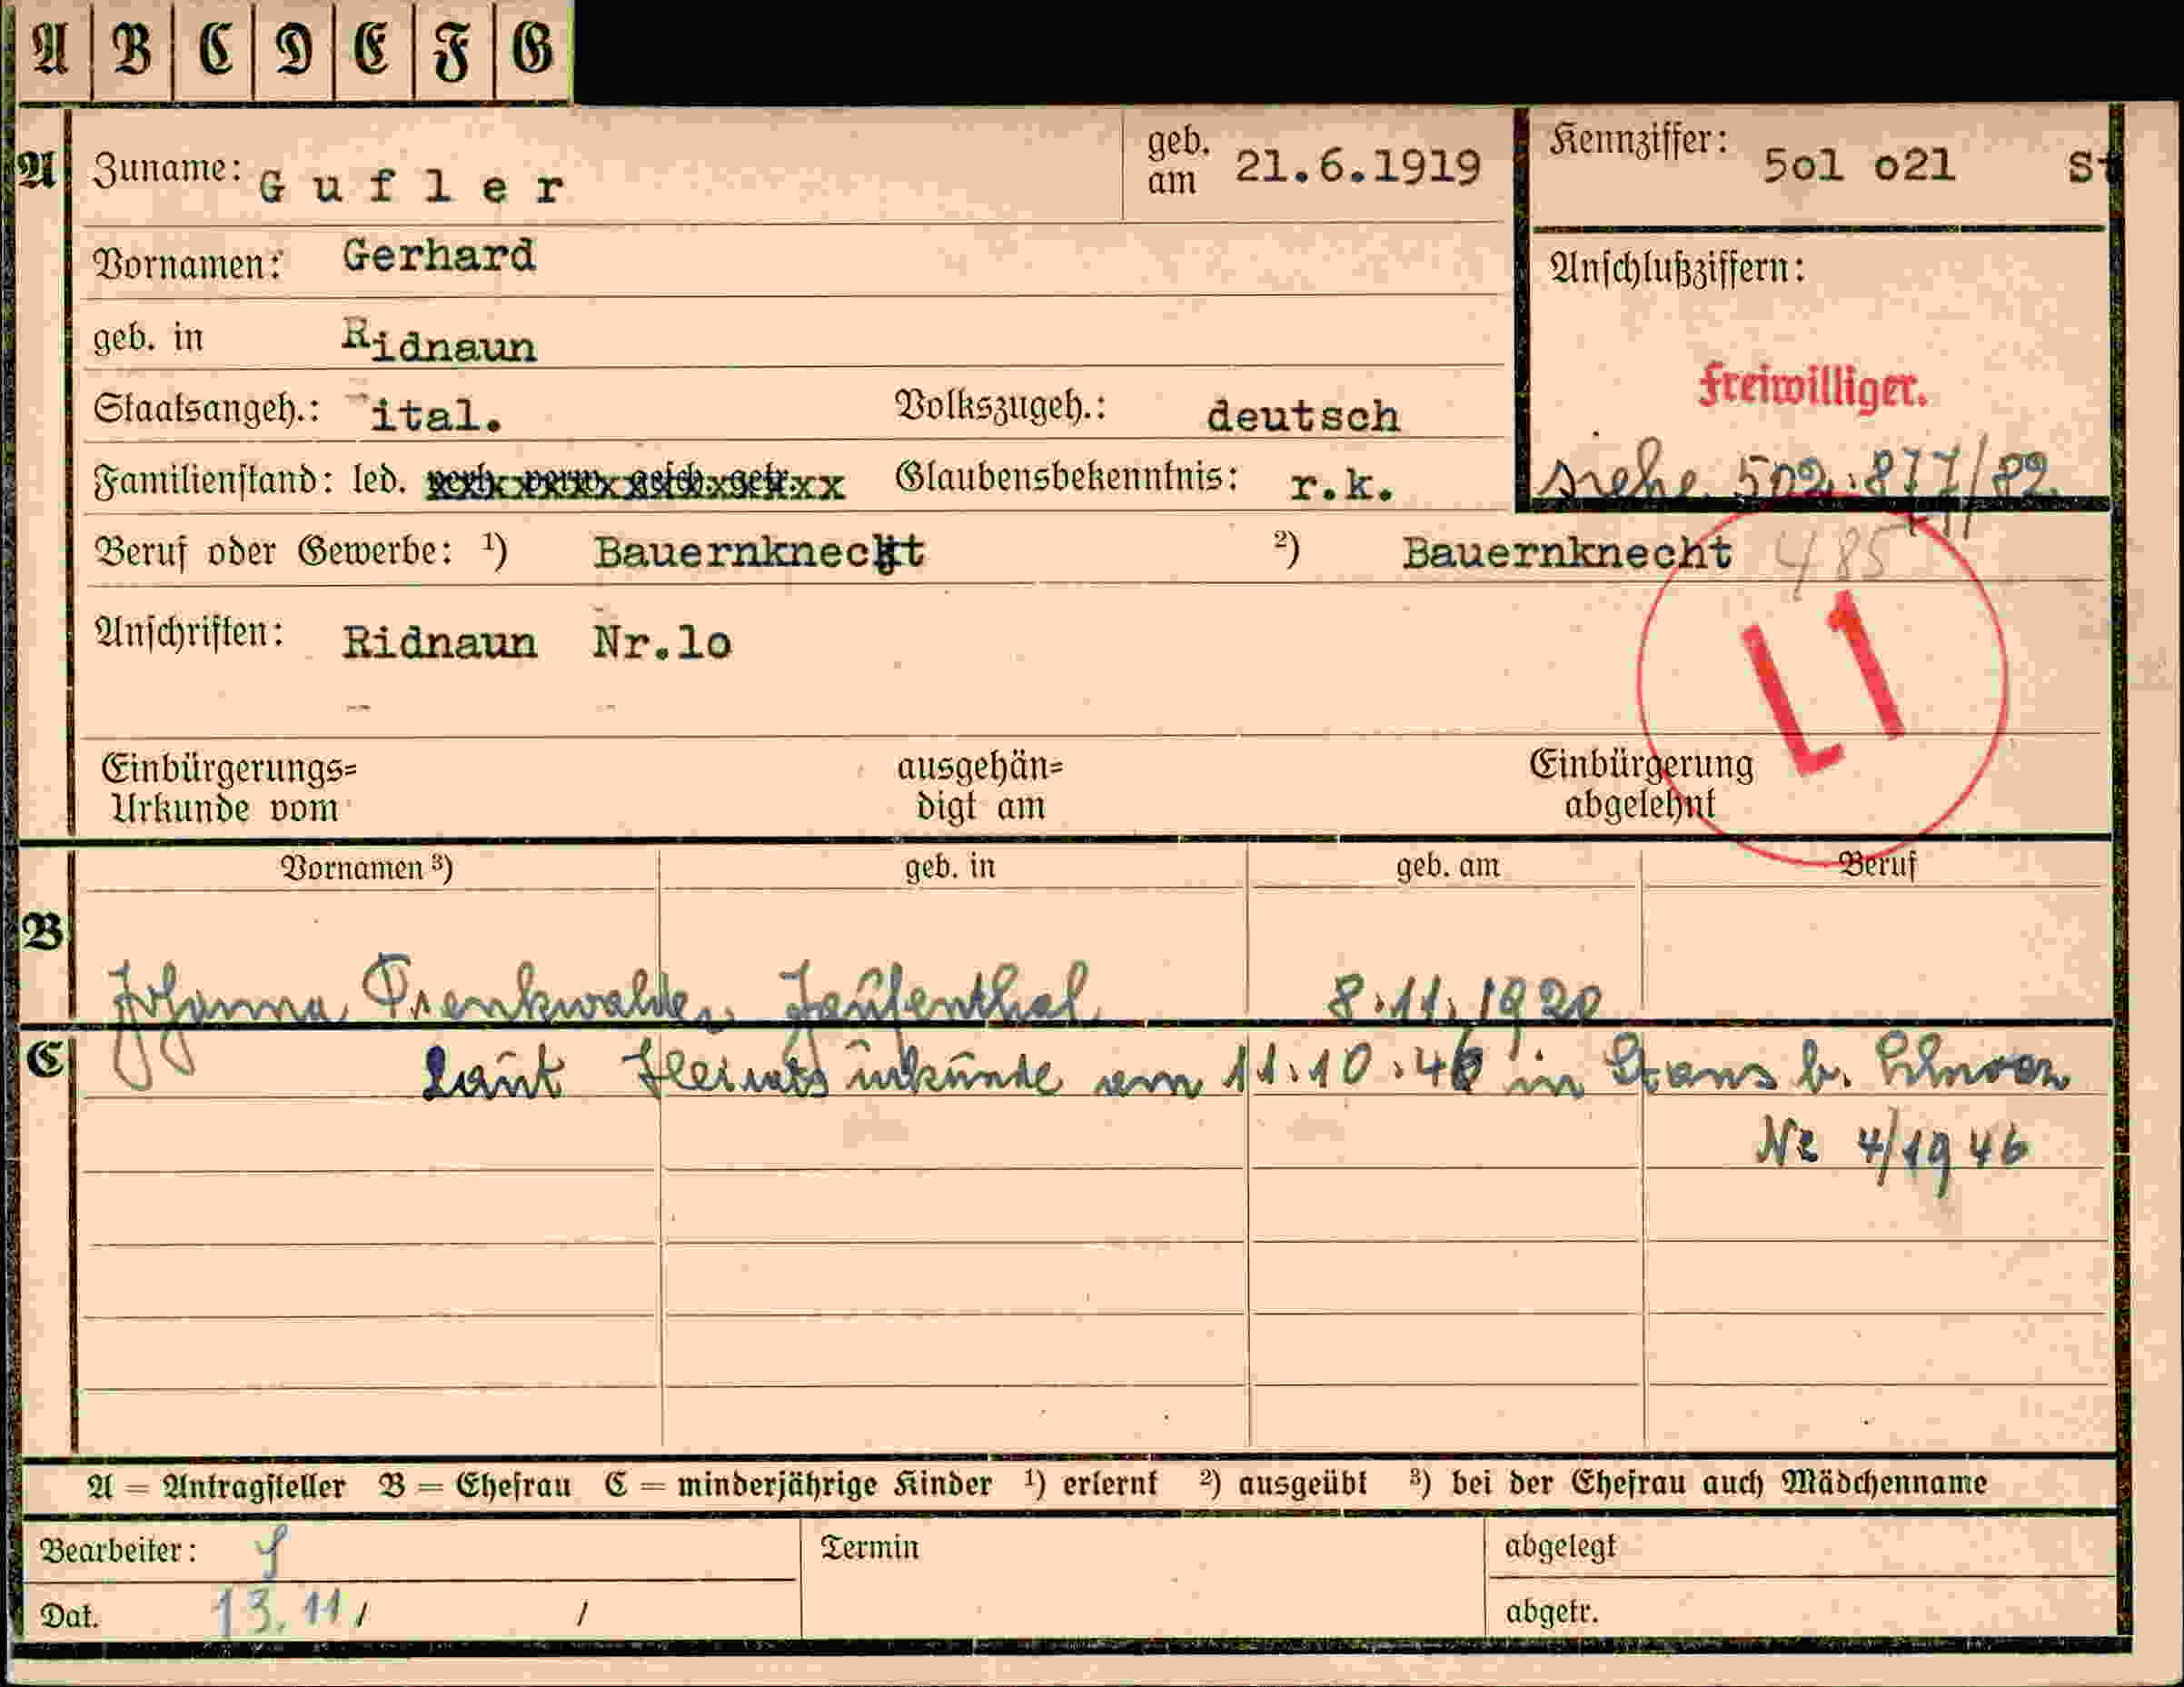 A B C D E F G
A Zuname: G u f l e r geb. am 21.6.1919 Kennziffer: 5o1 o21 St
Vornamen: Gerhard Anschlußziffern:
geb. in Ridnaun
Freiwilliger.
Staatsangeh.: ital. Volkszugeh.: deutsch
Familienstand: led. verh. verw. gesch. getr. xx Glaubensbekenntnis: r.k. siehe 502.877/82
Beruf oder Gewerbe: ¹) Bauernknecht ²) Bauernknecht 485
Anschriften: Ridnaun Nr.1o
L1
Einbürgerungs= ausgehän= Einbürgerung
Urkunde vom digt am abgelehnt
Vornamen ³) geb. in geb. am Beruf
B
Johanna Trenkwalder Jaufenthal 8.11.1920
C Laut Heiratsurkunde am 11.10.46 in Stans b. Schwaz
Nr 4/1946
A = Antragsteller B = Ehefrau C = minderjährige Kinder ¹) erlernt ²) ausgeübt ³) bei der Ehefrau auch Mädchenname
Bearbeiter: Termin abgelegt
Dat. 13.11 / / abgetr.